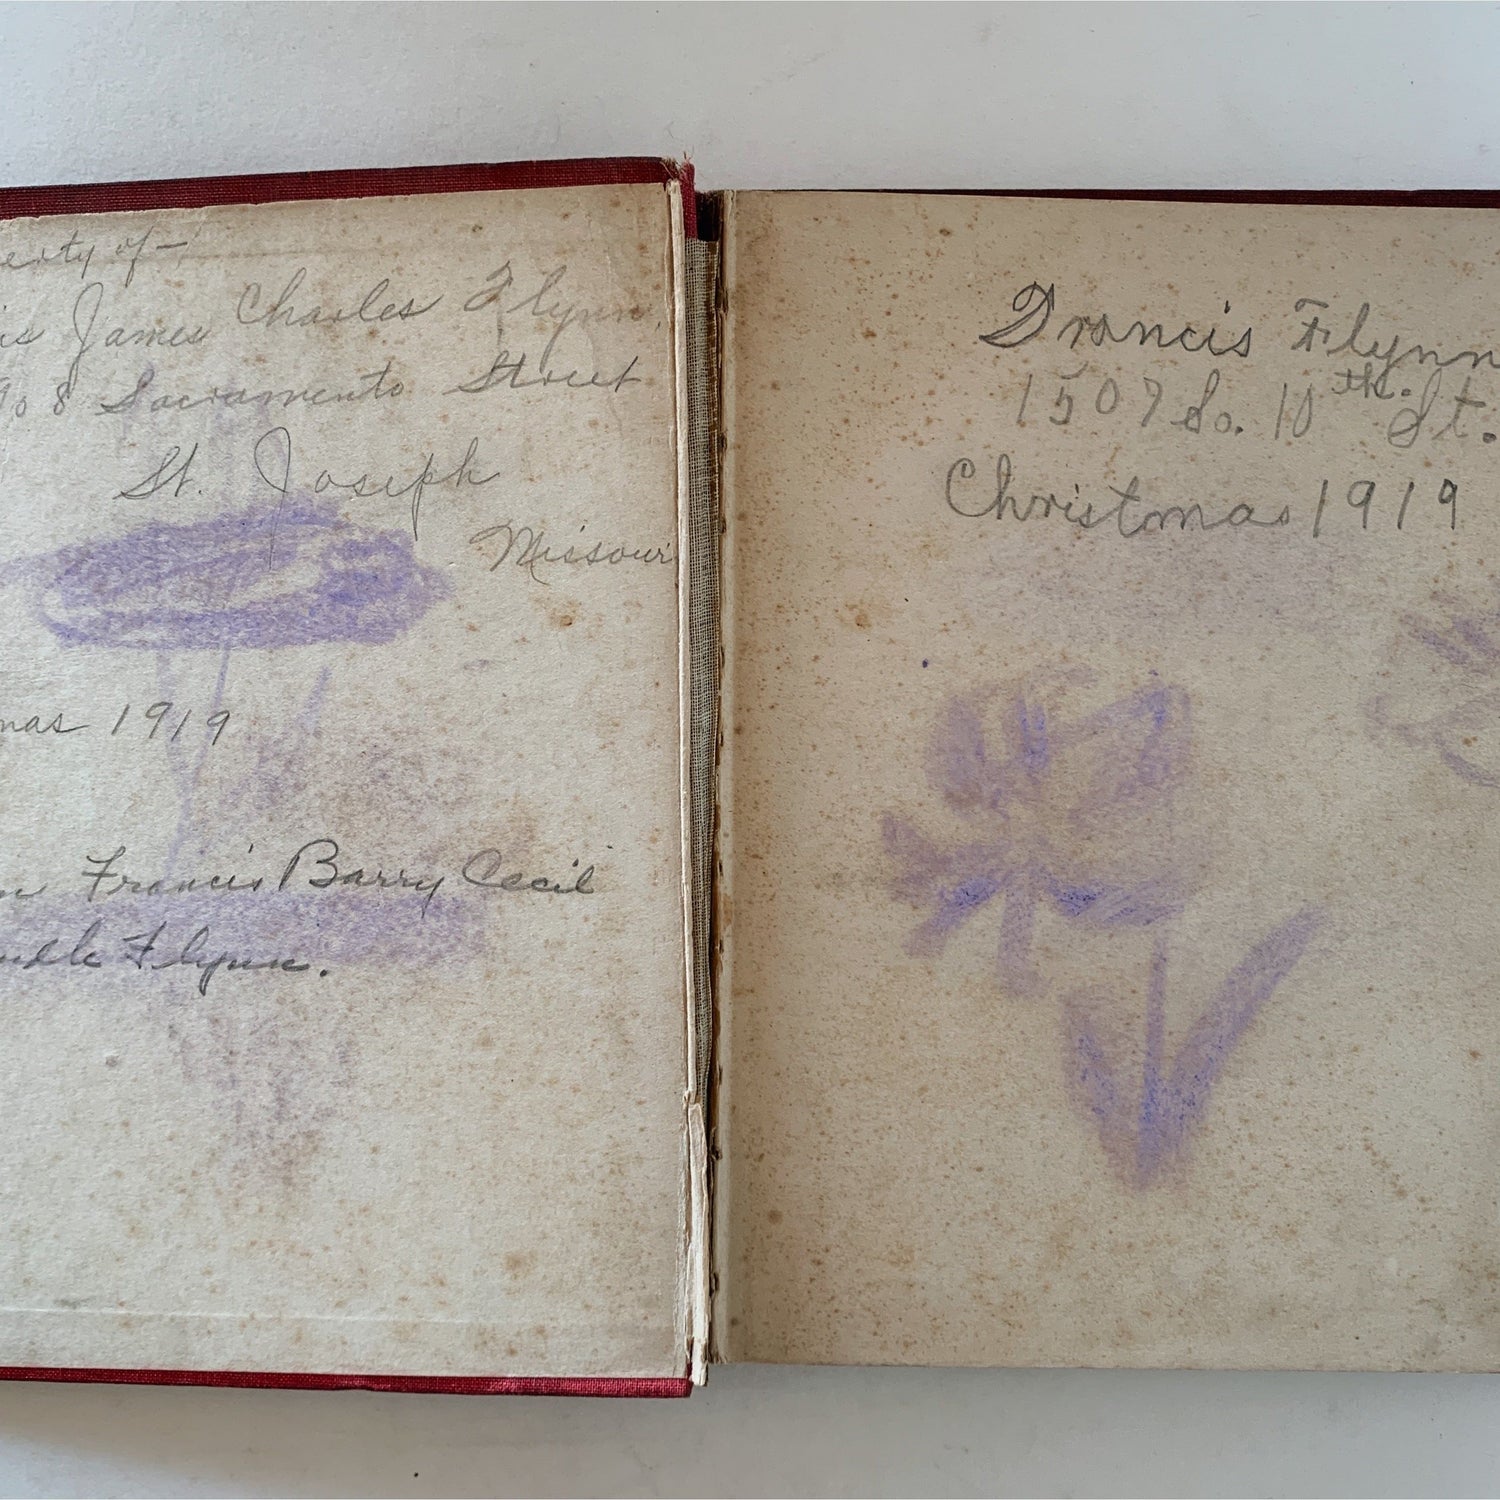 erty of—
is James Charles Flynn,
908 Sacramento Street
St. Joseph
Missouri
mas 1919
Francis Barry Cecil
Flynn.
Francis Flynn
1507 So. 10th. St.
Christmas 1919